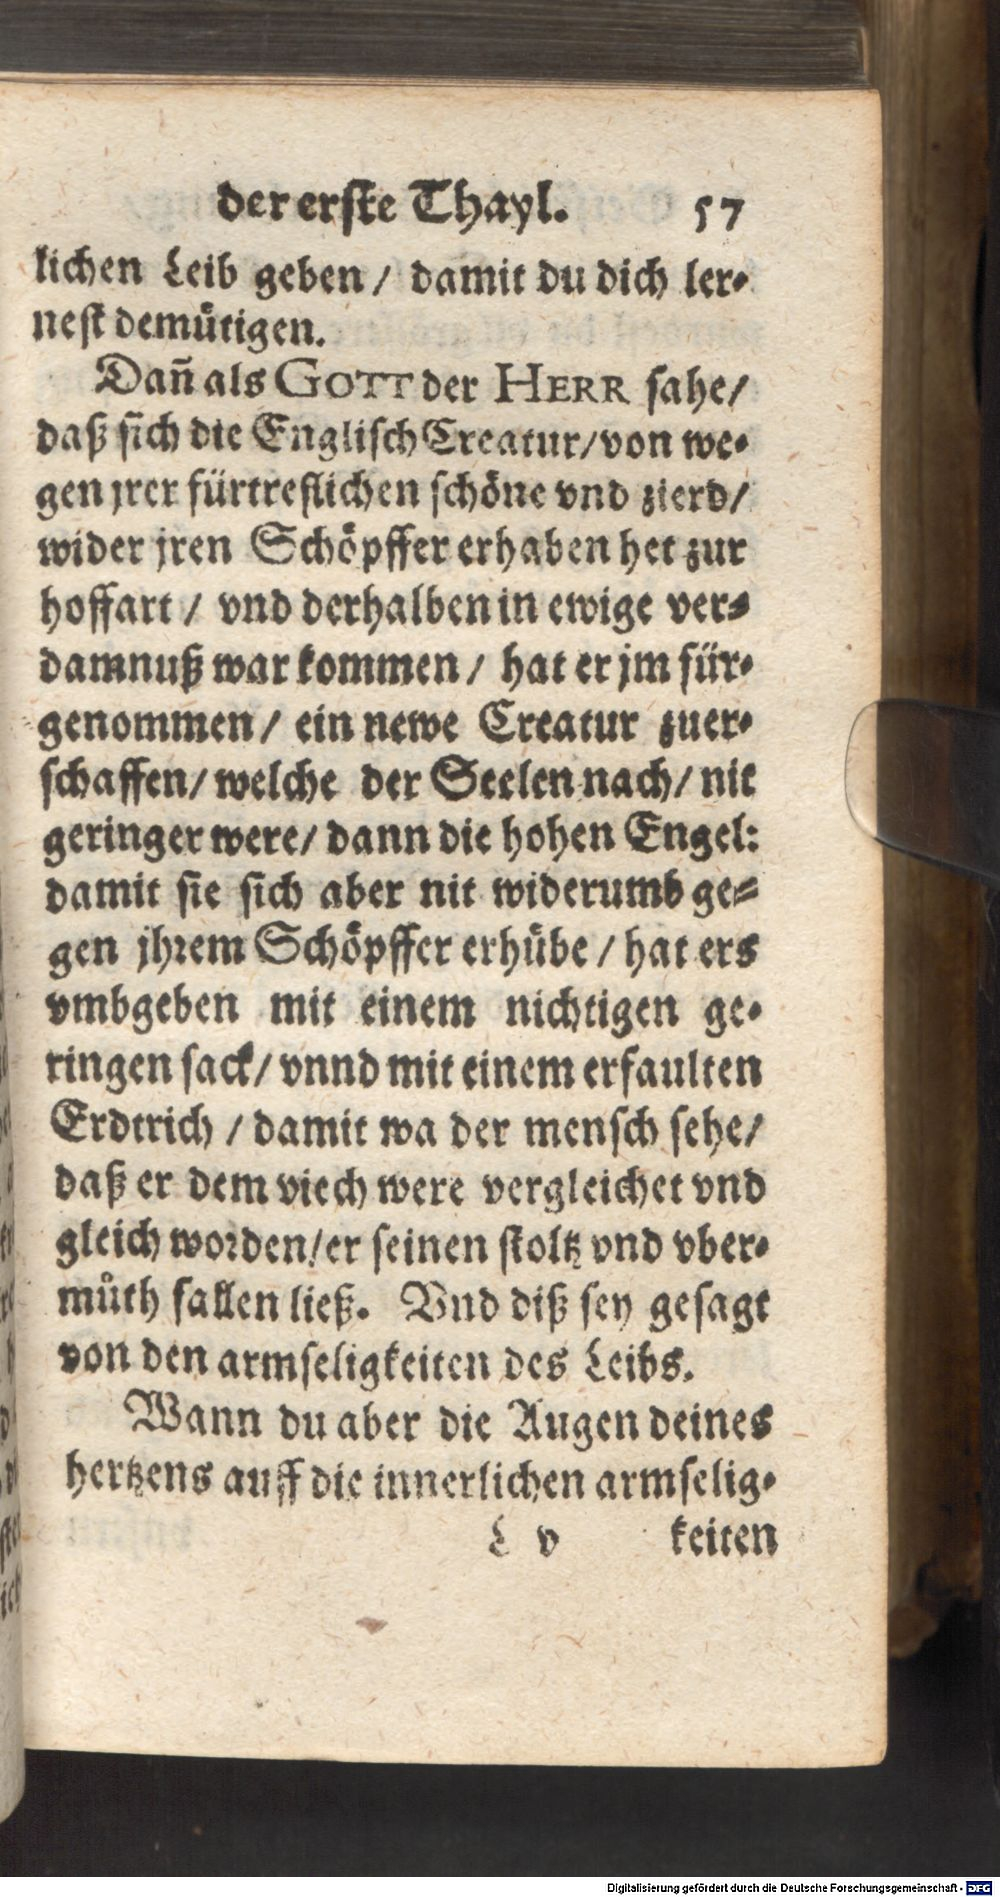 der erste Thayl. 57
lichen Leib geben / damit du dich ler-
nest demütigen.
Dañ als GOTT der HERR sahe/
daß sich die Englisch Creatur/von we-
gen jrer fürtreflichen schöne vnd zierd/
wider jren Schöpffer erhaben het zur
hoffart / vnd derhalben in ewige ver-
damnuß war kommen / hat er jm für-
genommen / ein newe Creatur zuer-
schaffen/ welche der Seelen nach/ nit
geringer were/ dann die hohen Engel:
damit sie sich aber nit widerumb ge-
gen jhrem Schöpffer erhübe / hat ers
vmbgeben mit einem nichtigen ge-
ringen sack/ vnnd mit einem erfaulten
Erdtrich / damit wa der mensch sehe/
daß er dem viech were vergleichet vnd
gleich worden/er seinen stoltz vnd vber-
můth fallen ließ. Vnd diß sey gesagt
von den armseligkeiten des Leibs.
Wann du aber die Augen deines
hertzens auff die innerlichen armselig-
L v keiten
Digitalisierung gefördert durch die Deutsche Forschungsgemeinschaft - DFG